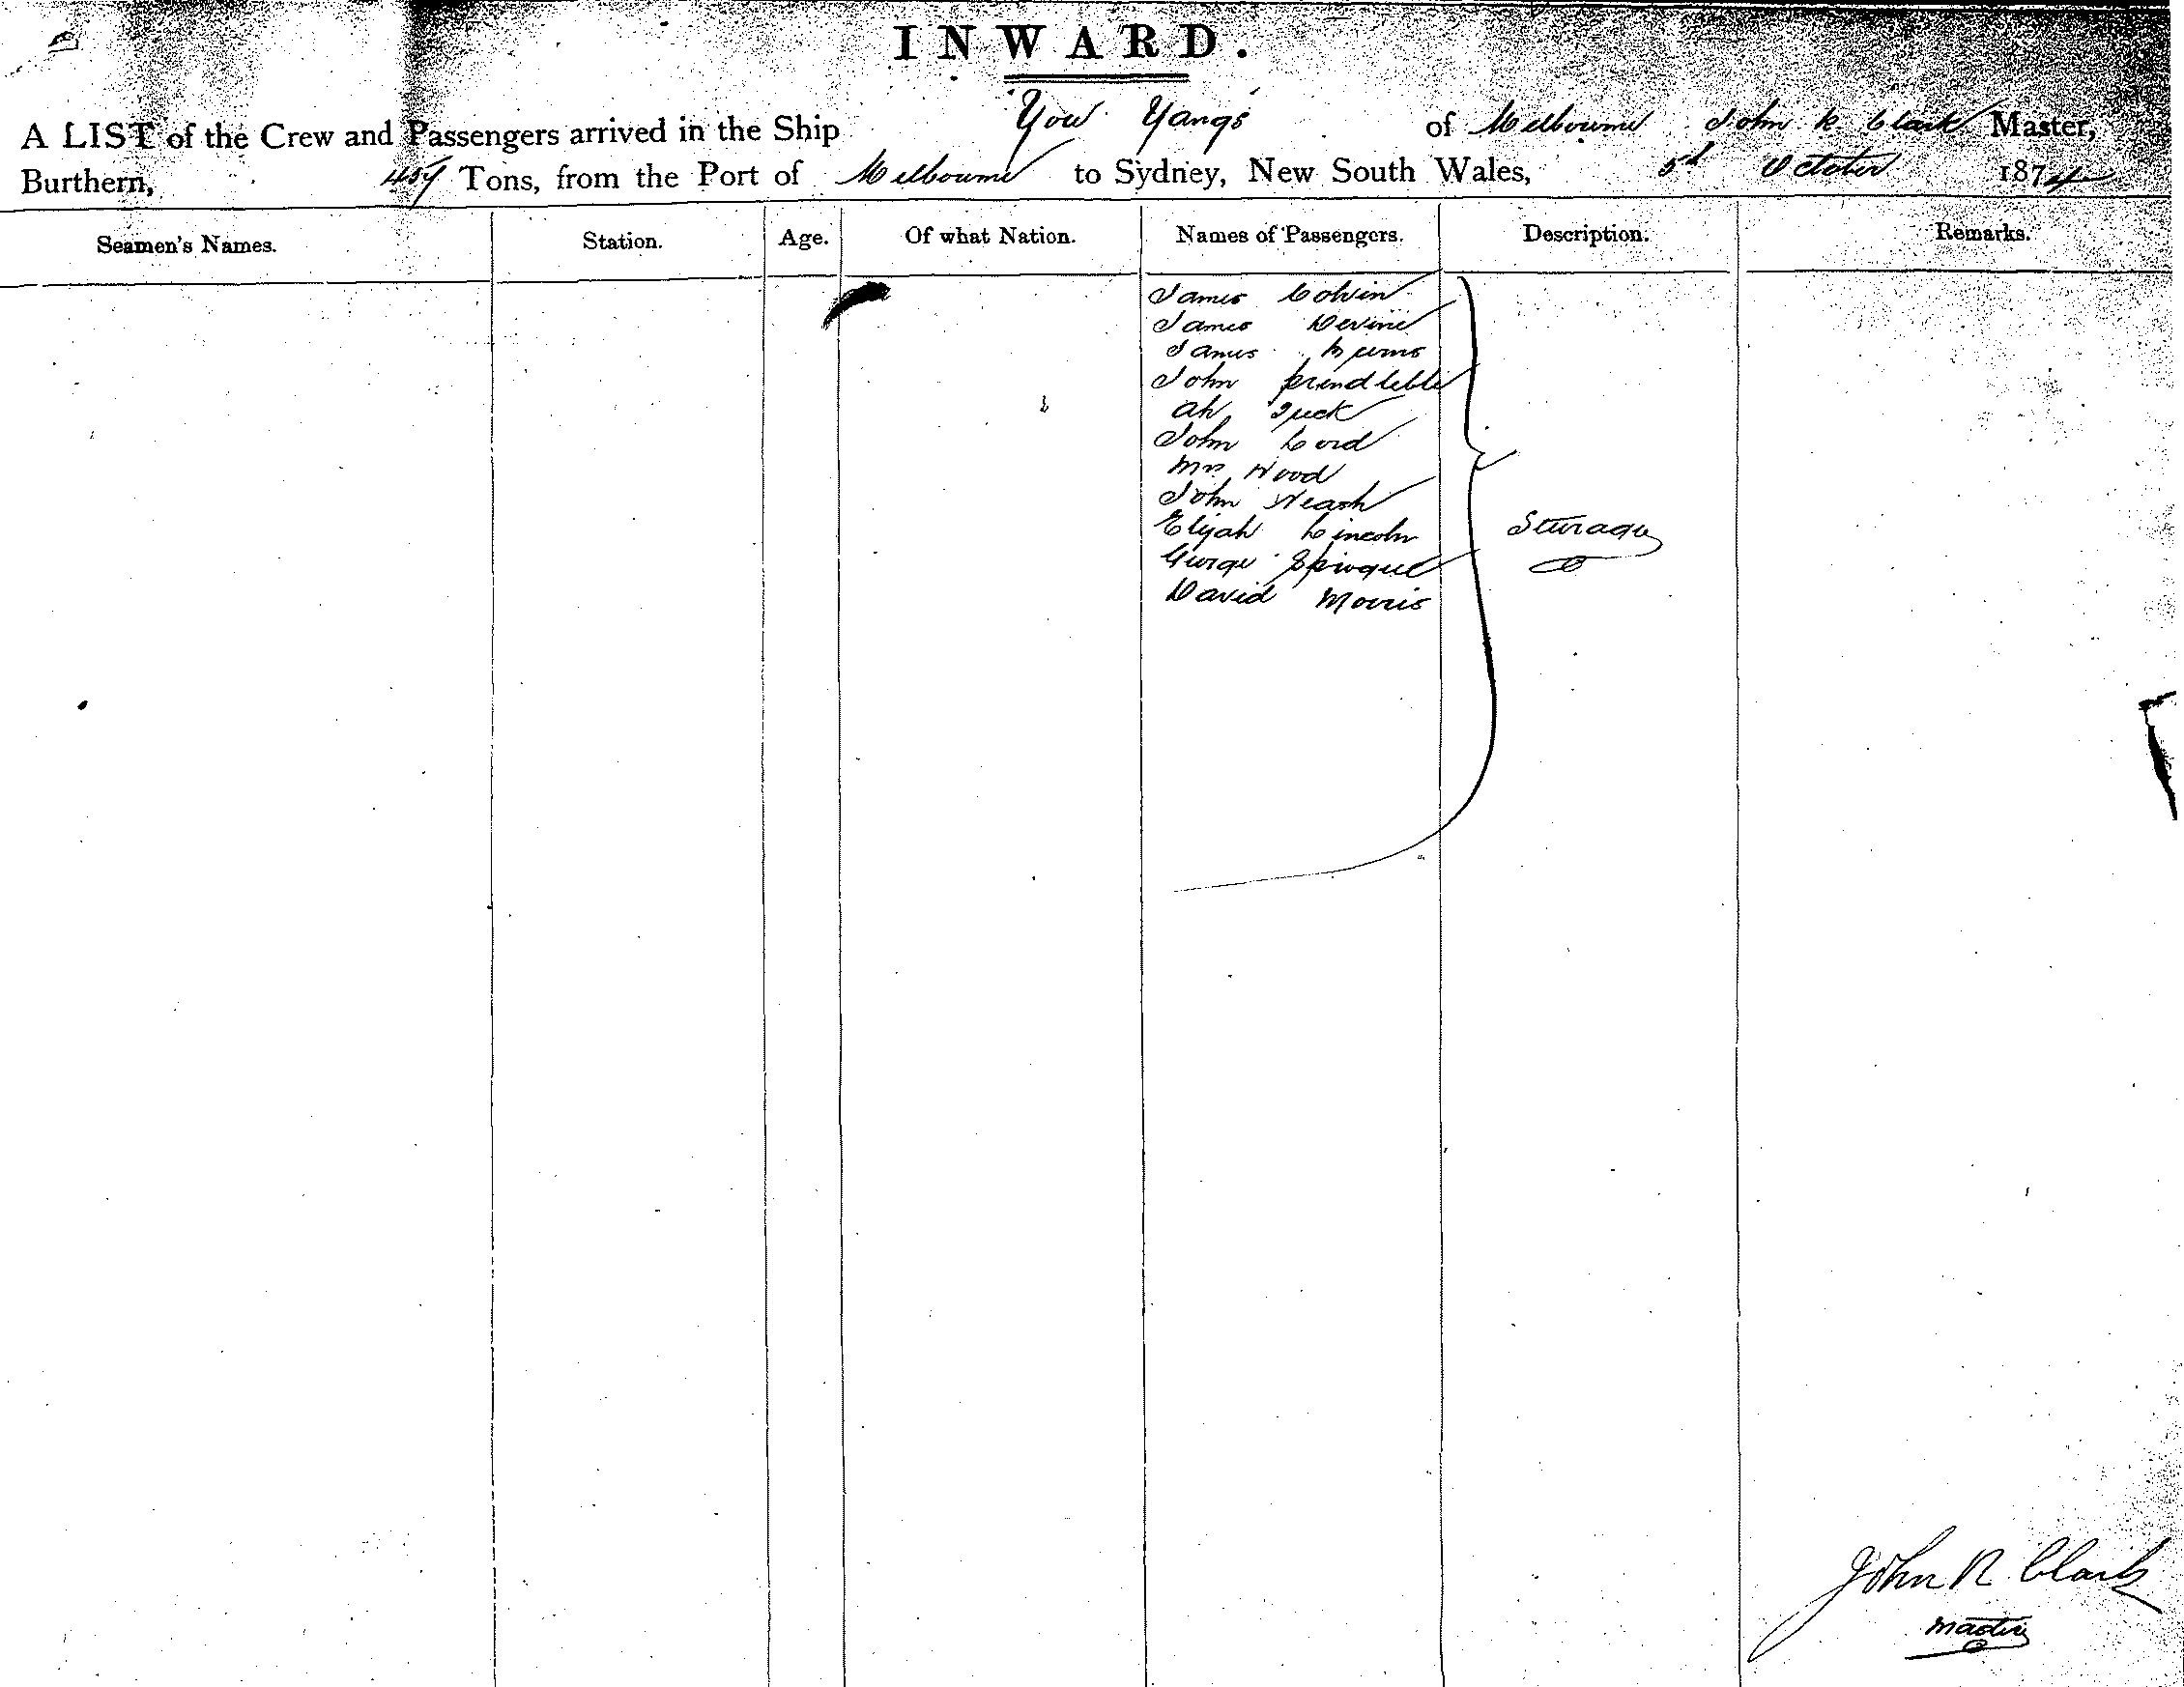 INWARD.
A LIST of the Crew and Passengers arrived in the Ship "You Yangs" of Melbourne John R Clark Master,
Burthern, 459 Tons, from the Port of Melbourne to Sydney, New South Wales, 5th October 1874
Seamen's Names. Station. Age. Of what Nation. Names of Passengers. Description. Remarks.
James Colvin
James Devine
James
John
Ah
John
Mrs Wood
John
Elijah Lincoln
Steerage
George
David Morris
John R Clark
Master